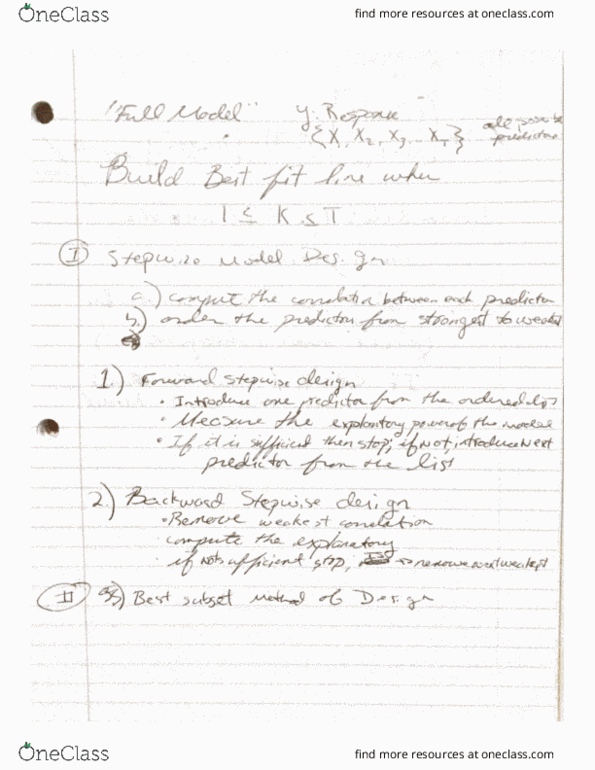 OneClass
find more resources at oneclass.com
"Full Model" y: Response
{X, X2, X3... XT} all possible
predictors
Build Best fit line when
1 ≤ K ≤ T
I Stepwise Model Design
a.) comput the correlation between each predictor
b.) order the predictors from strongest to weakest
1.) Forward stepwise design
• Introduce one predictor from the ordered list
• Measure the explanitory power of the model
• If it is sufficient then stop; if Not, introduce Next
predictor from the list
2.) Backward Stepwise design
• Remove weakest correlation
• compute the explanatory
• if Not sufficient stop, remove next weakest
II Best subset Method of Design
OneClass
find more resources at oneclass.com